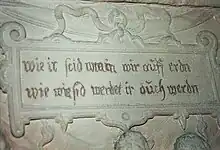 wie ir seid warn wir auff erdn
wie werdet ir auch werdn